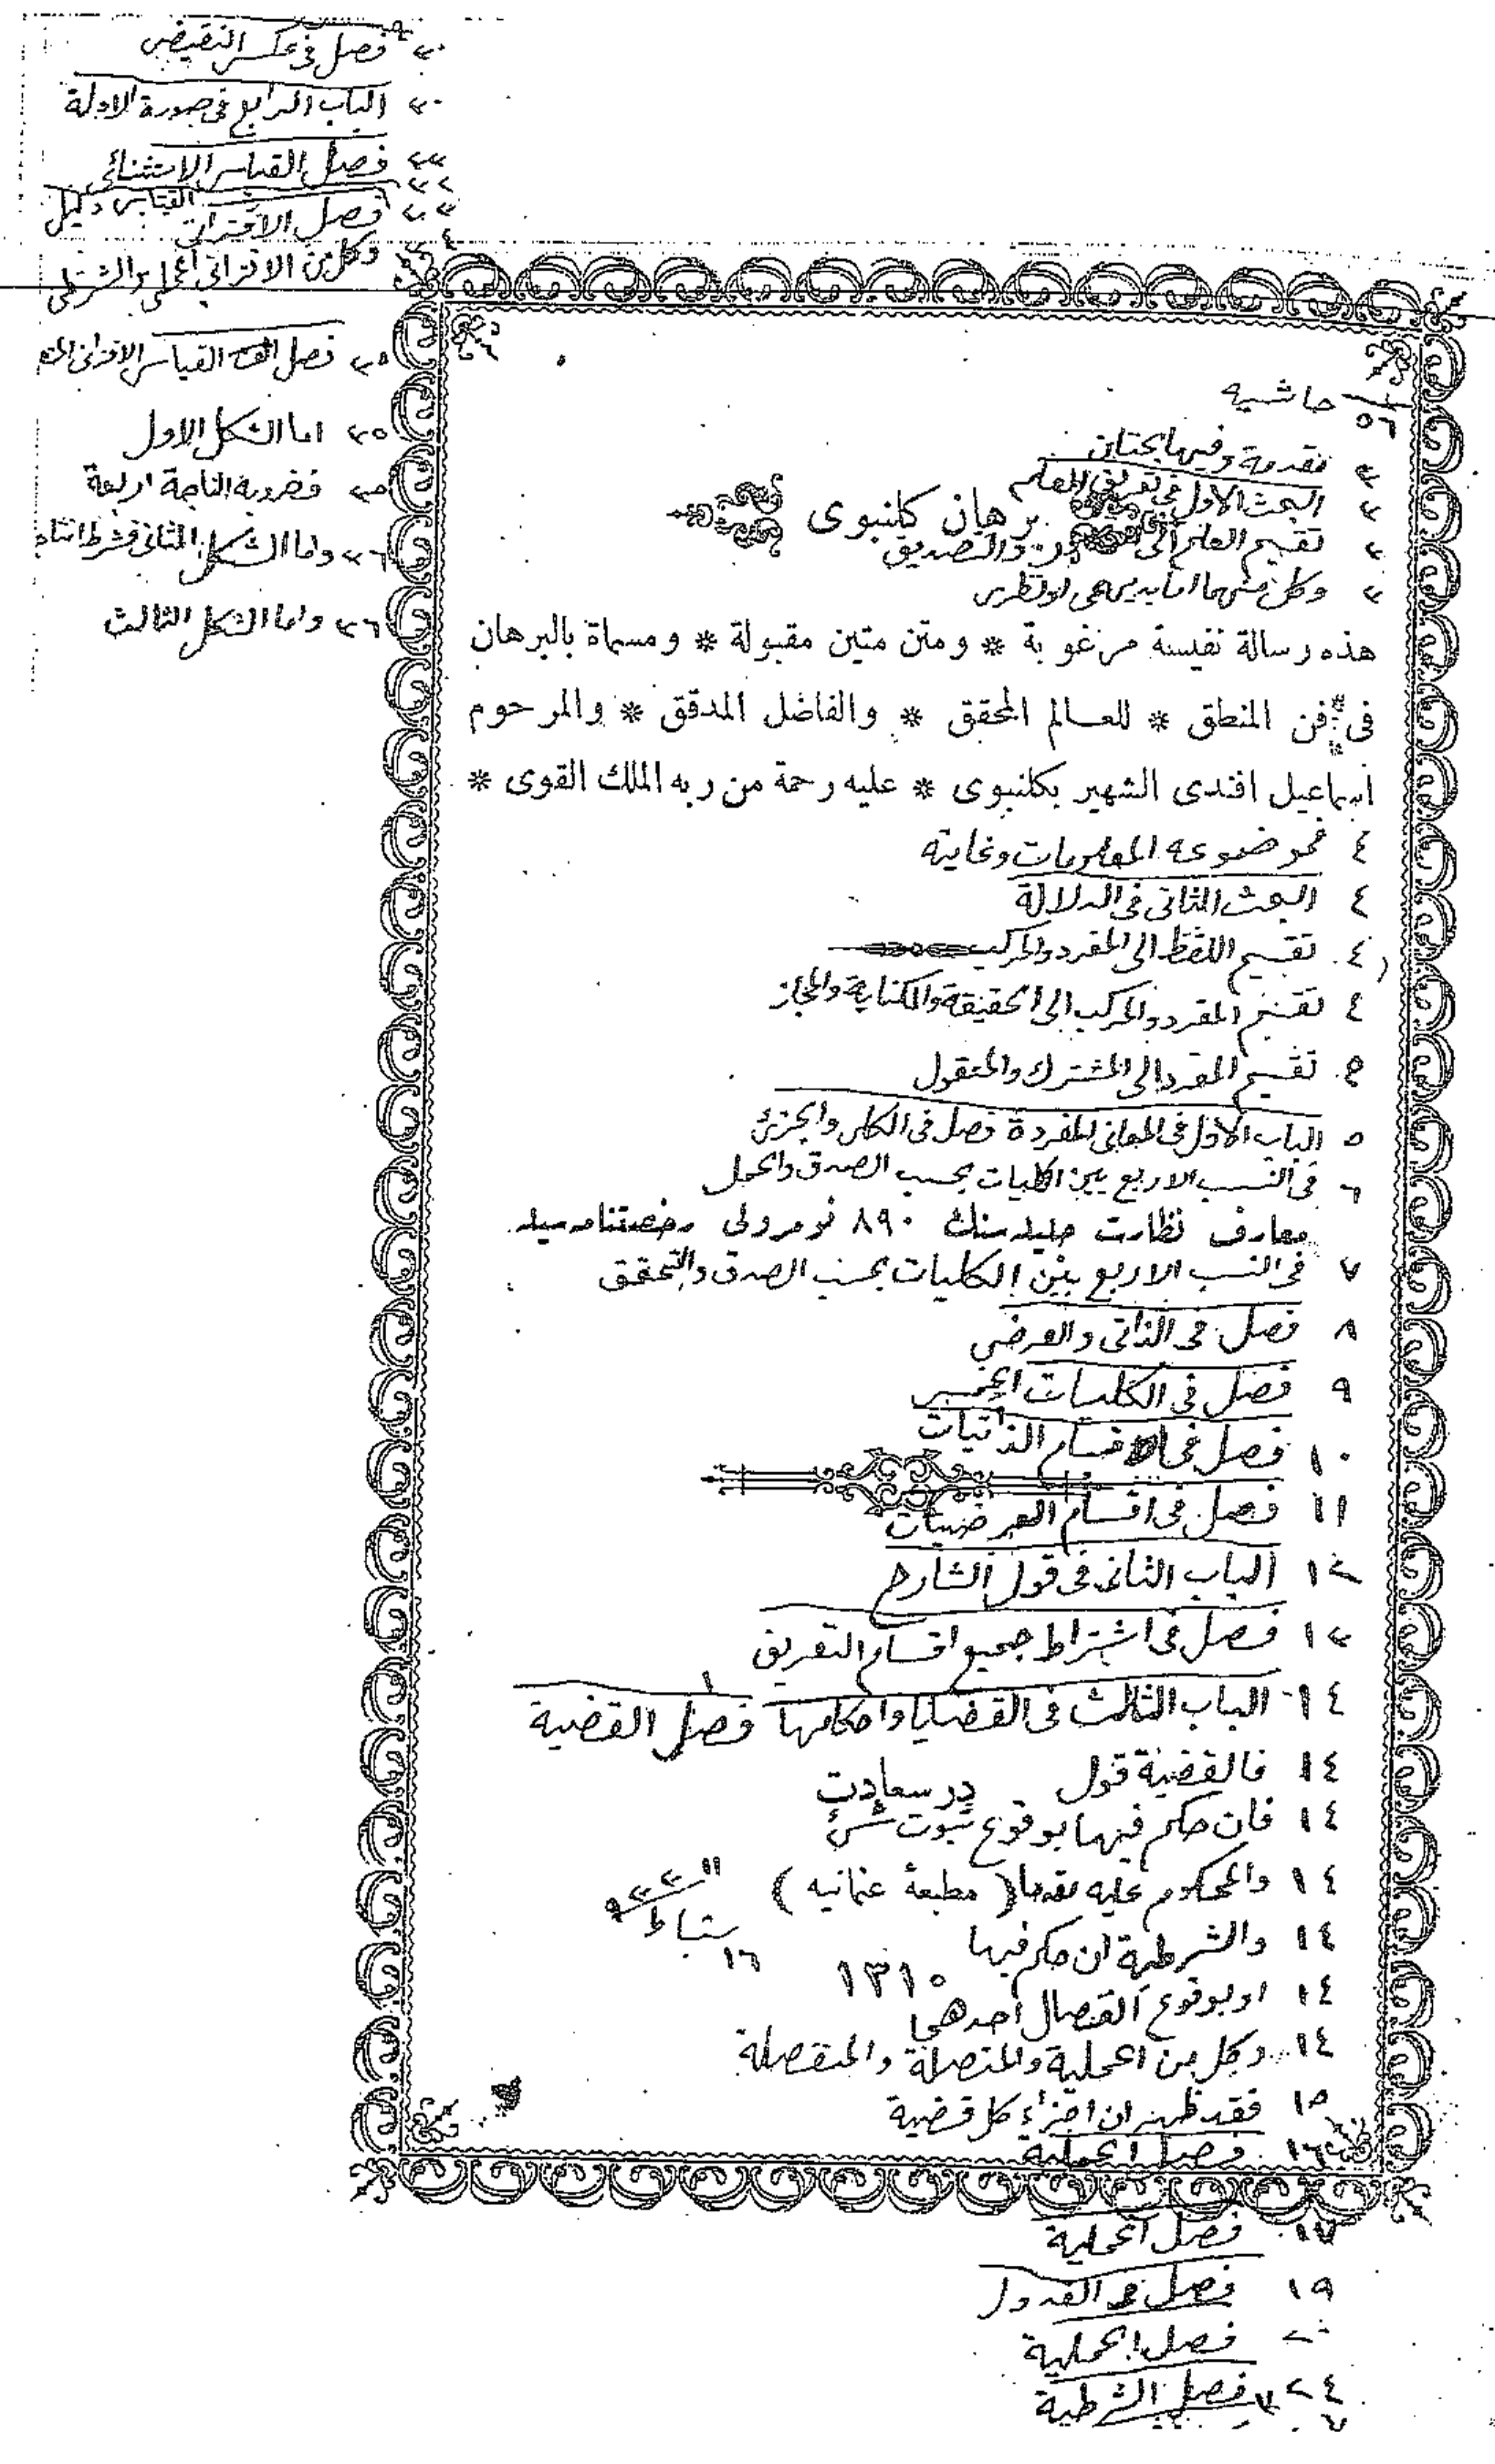 فصل في عكس النقيض
٣٠ الباب الرابع في صورة الادلة
فصل القياس الاستثنائي
فصل الاقتراني
وكل من الاقتراني الحملي والشرطي
فصل القياس الاقتراني
اما الشكل الاول
فضروبه الناتجة اربعة
واما الشكل الثاني فشرط انتاجه
واما الشكل الثالث
حاشيه
٥٦
مقدمة وفيها بحثان
البحث الاول في تعريف العلم
برهان كلنبوى
تقسيم العلم الى والتصديق
وكل منهما اما بديهي او نظري
هذه رسالة نفيسة مرغوبة * ومتن متين مقبولة * ومسماة بالبرهان
فى فن المنطق * للعالم المحقق * والفاضل المدقق * والمرحوم
اسماعيل افندى الشهير بكلنبوى * عليه رحمة من ربه الملك القوى *
٤ فموضوعه المعلومات وغايته
٤ البحث الثاني في الدلالة
٤ تقسيم اللفظ الى المفرد والمركب
٤ تقسيم المفرد والمركب الى الحقيقة والكناية والمجاز
٥ تقسيم المفرد الى المشترك والمنقول
٥ الباب الاول في المعاني المفردة فصل في الكلي والجزئي
٦ في النسب الاربع بين الكليات بحسب الصدق والحمل
معارف نظارت جليله سنك ٨٩٠ نومرولى رخصتنامه سيله
٧ في النسب الاربع بين الكليات بحسب الصدق والتحقق
٨ فصل في الذاتي والعرضي
٩ فصل في الكليات الخمس
١٠ فصل في اقسام الذاتيات
١١ فصل في اقسام العرضيات
١٢ الباب الثاني في قول الشارح
١٣ فصل في اشتراط جميع اقسام التعريف
١٤ الباب الثالث في القضايا واحكامها فصل القضية
١٤ فالقضية قول
در سعادت
١٤ فان حكم فيها بوقوع ثبوت شئ
١٤ والمحكوم عليه
( مطبعۀ عثمانيه )
١٤ والشرطية ان حكم فيها
شباط
١٦
١٣١٠
١٤ او بوقوع انفصال احدهما
١٤ وكل من الحملية والمتصلة والمنفصلة
١٥ فقد ظهر ان اجزاء كل قضية
١٦ فصل الحملية
١٧ فصل الحملية
١٩ فصل في العدول
٢٠ فصل الحملية
٢٤ فصل الشرطية